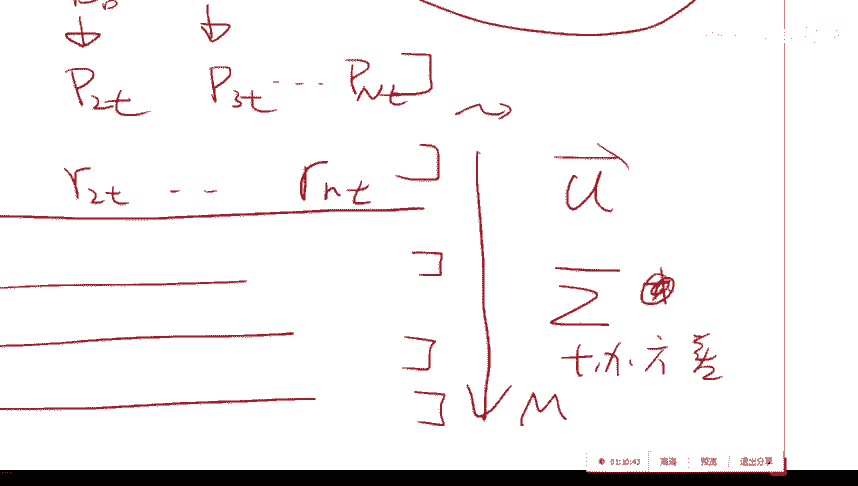 P2t P3t ... PNt ]
r2t ... rnt ]
u
]
Σ
协方差
]
] M
01:10:43 高清 退出分享